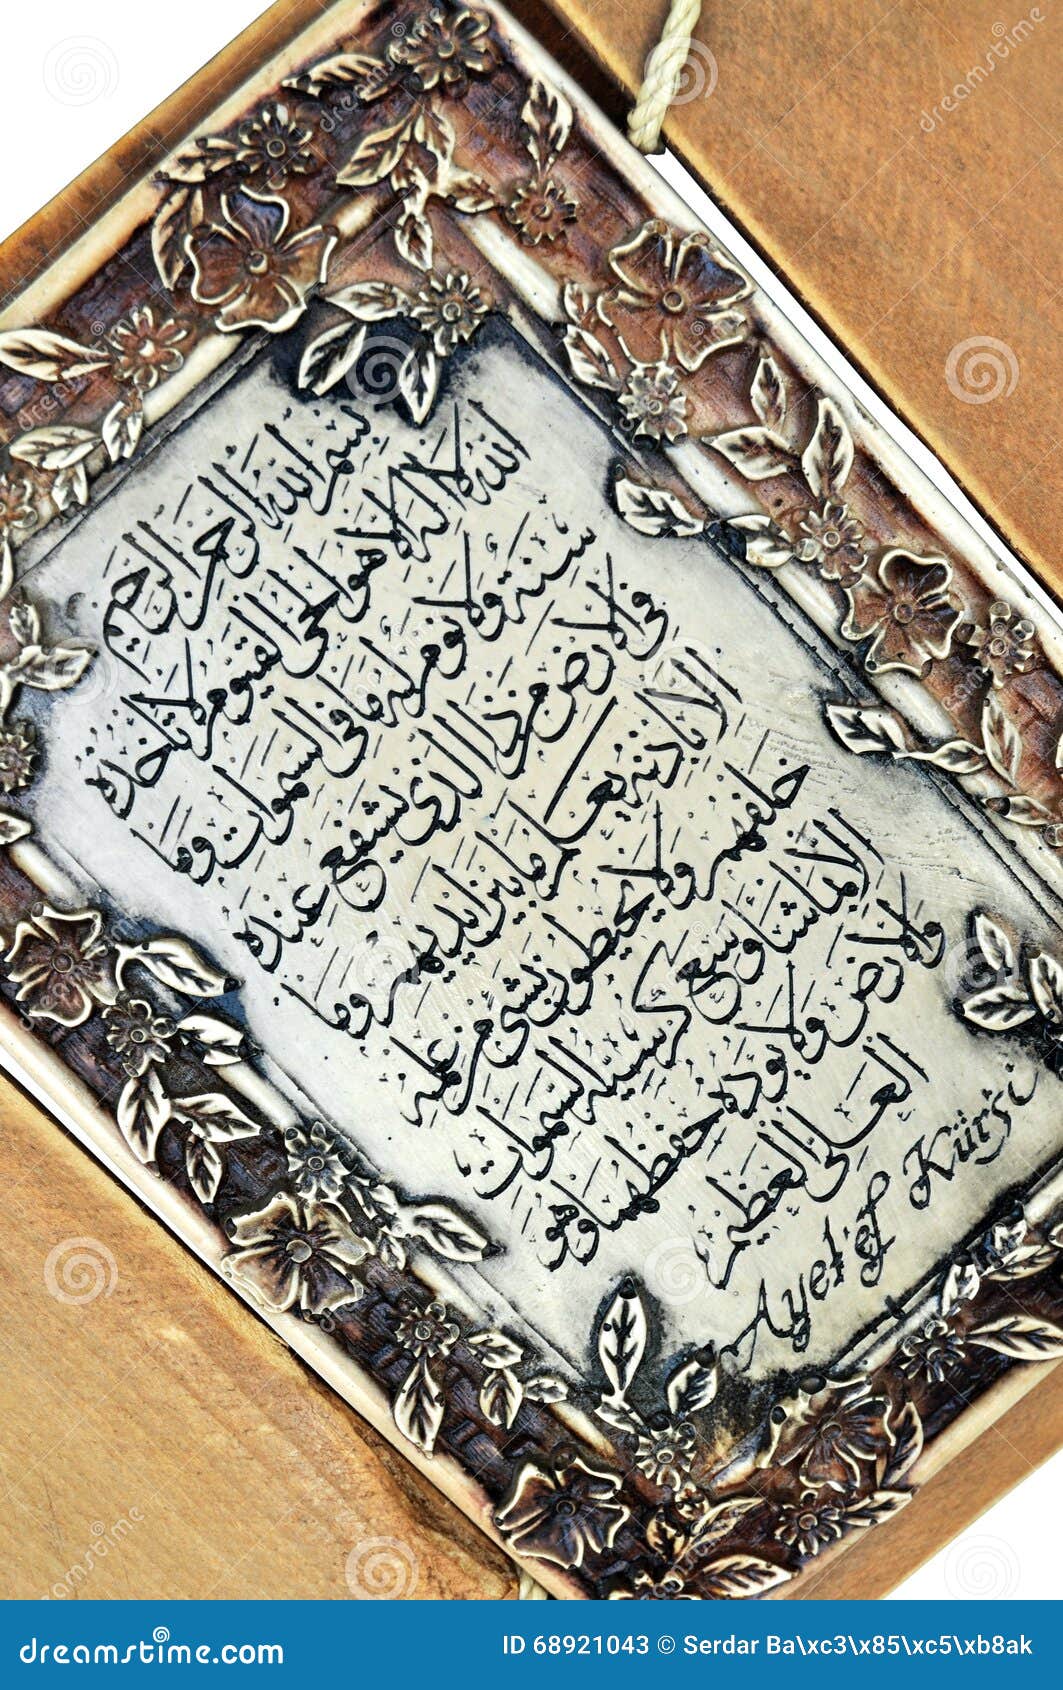 بسم الله الرحمن الرحيم
الله لا اله الا هو الحي القيوم لا تأخذه
سنة ولا نوم له ما في السموات وما
في الارض من ذا الذي يشفع عنده
الا باذنه يعلم ما بين ايديهم وما
خلفهم ولا يحيطون بشئ من علمه
الا بما شاء وسع كرسيه السموات
والارض ولا يؤده حفظهما وهو
العلي العظيم
Ayetel Kürsi
dreamstime.com
ID 68921043 © Serdar Ba\xc3\x85\xc5\xb8ak